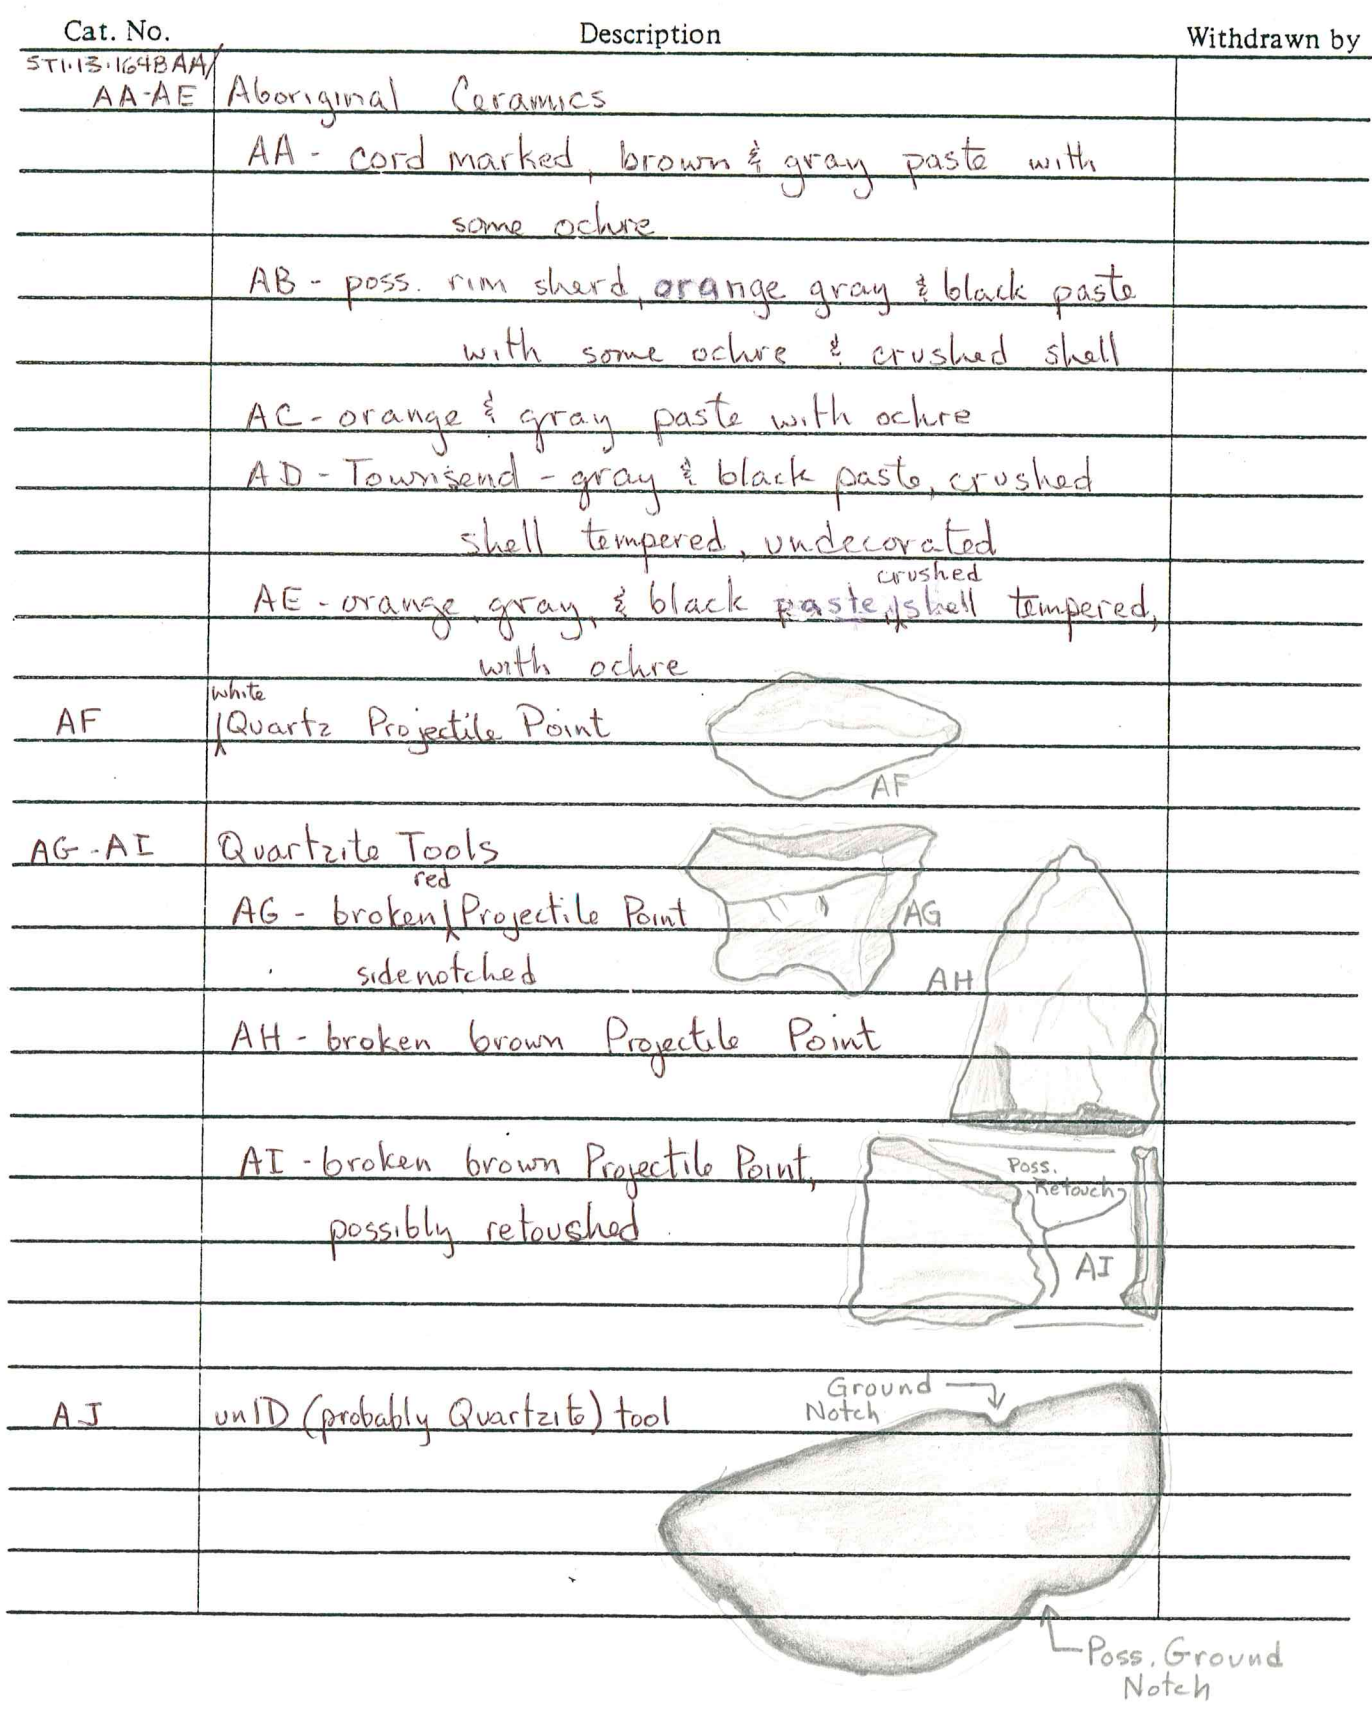 Cat. No. Description Withdrawn by
ST1.13.164B AA/
AA-AE Aboriginal Ceramics
AA - cord marked, brown & gray paste with
some ochre
AB - poss. rim sherd, orange gray & black paste
with some ochre & crushed shell
AC - orange & gray paste with ochre
AD - Townsend - gray & black paste, crushed
shell tempered, undecorated
crushed
AE - orange, gray, & black paste, shell tempered,
with ochre
white
AF Quartz Projectile Point
AF
AG - AI Quartzite Tools
red
AG - broken Projectile Point
AG
sidenotched
AH
AH - broken brown Projectile Point
AI - broken brown Projectile Point,
Poss.
Retouch
possibly retoushed
AI
Ground
Notch
AJ unID (probably Quartzite) tool
Poss. Ground
Notch